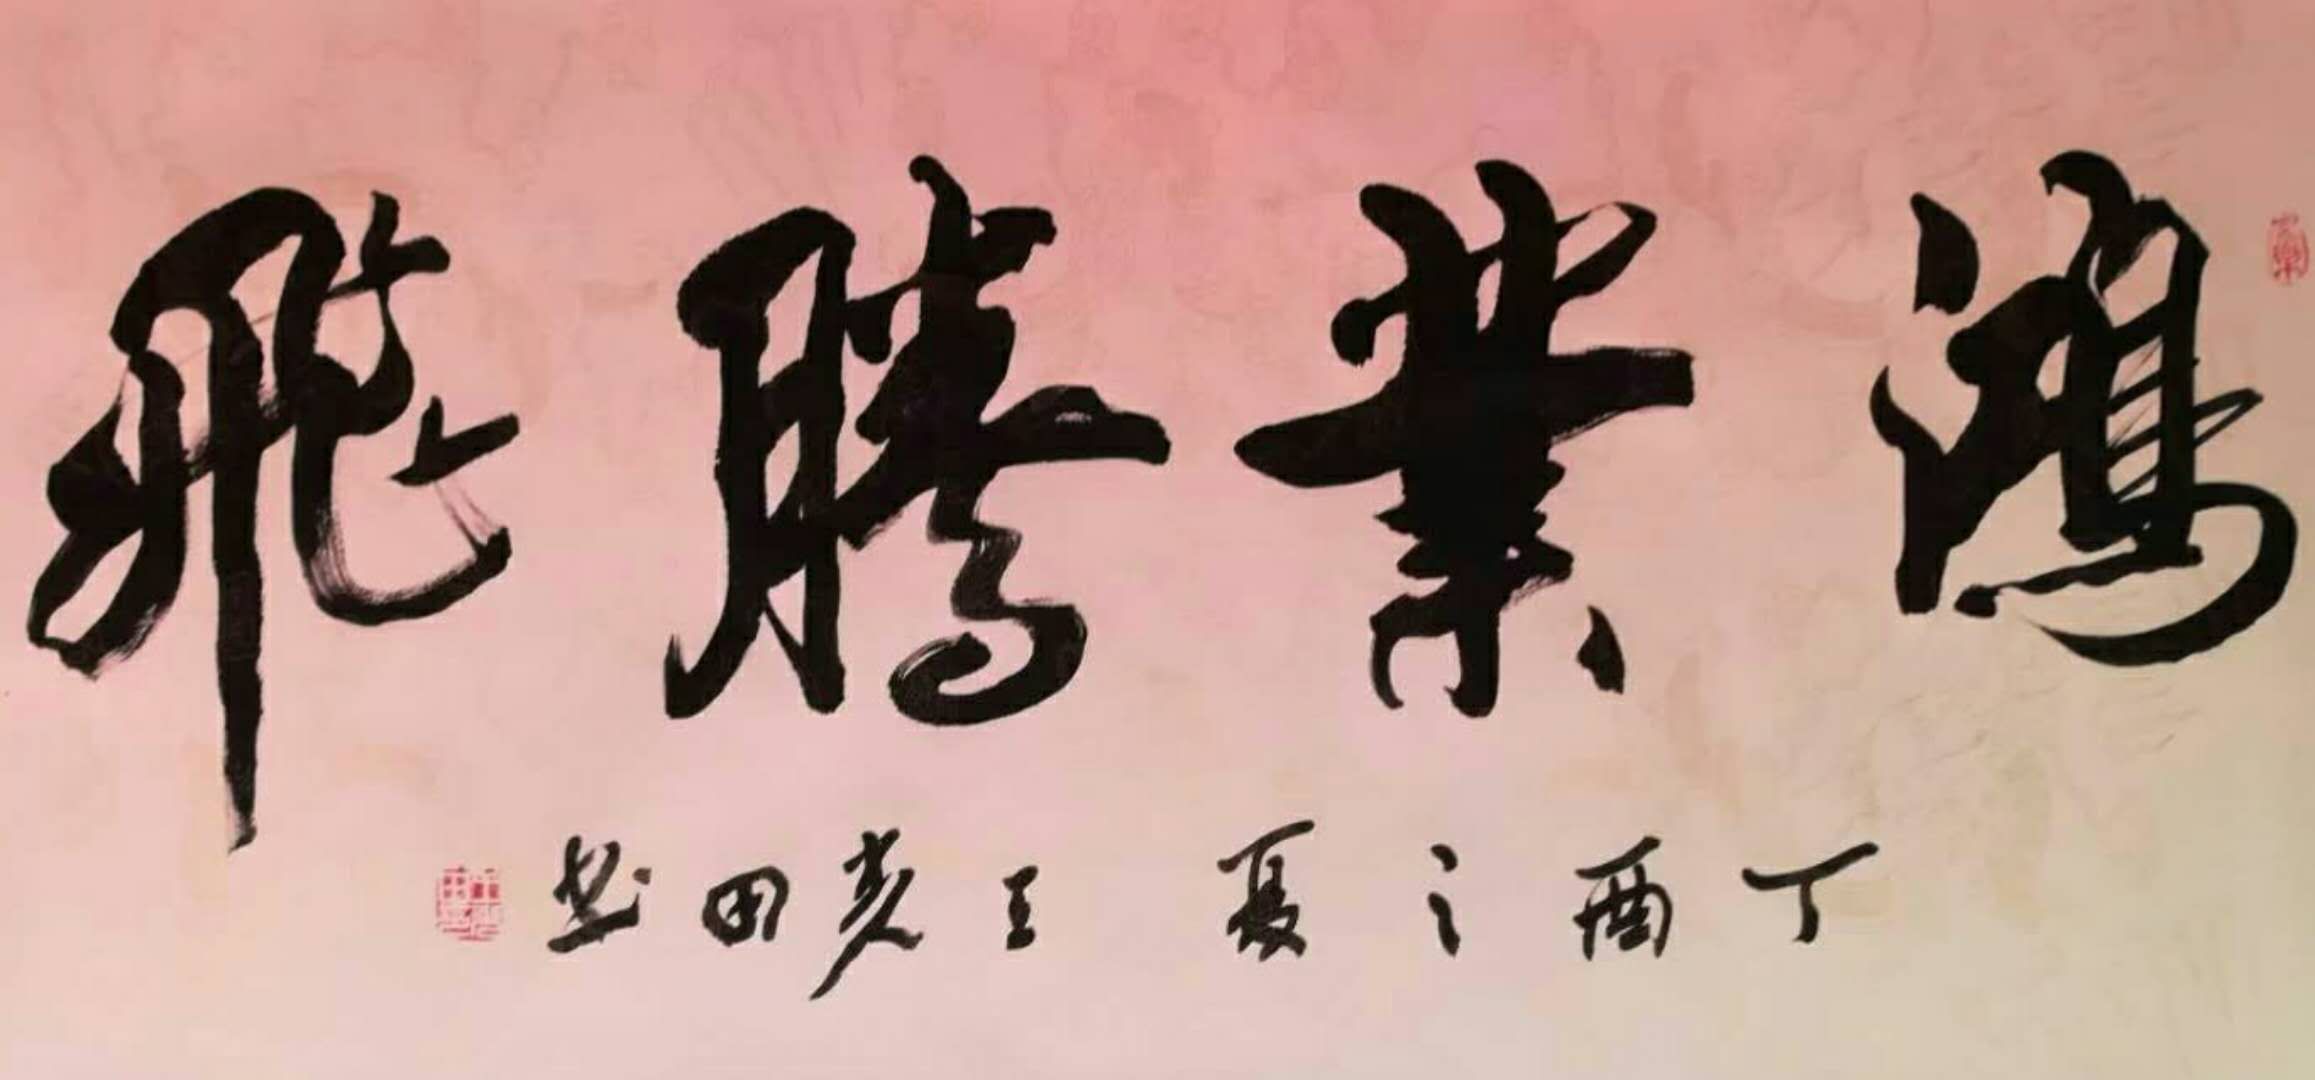 鴻業騰飛
丁酉之夏 王光田書